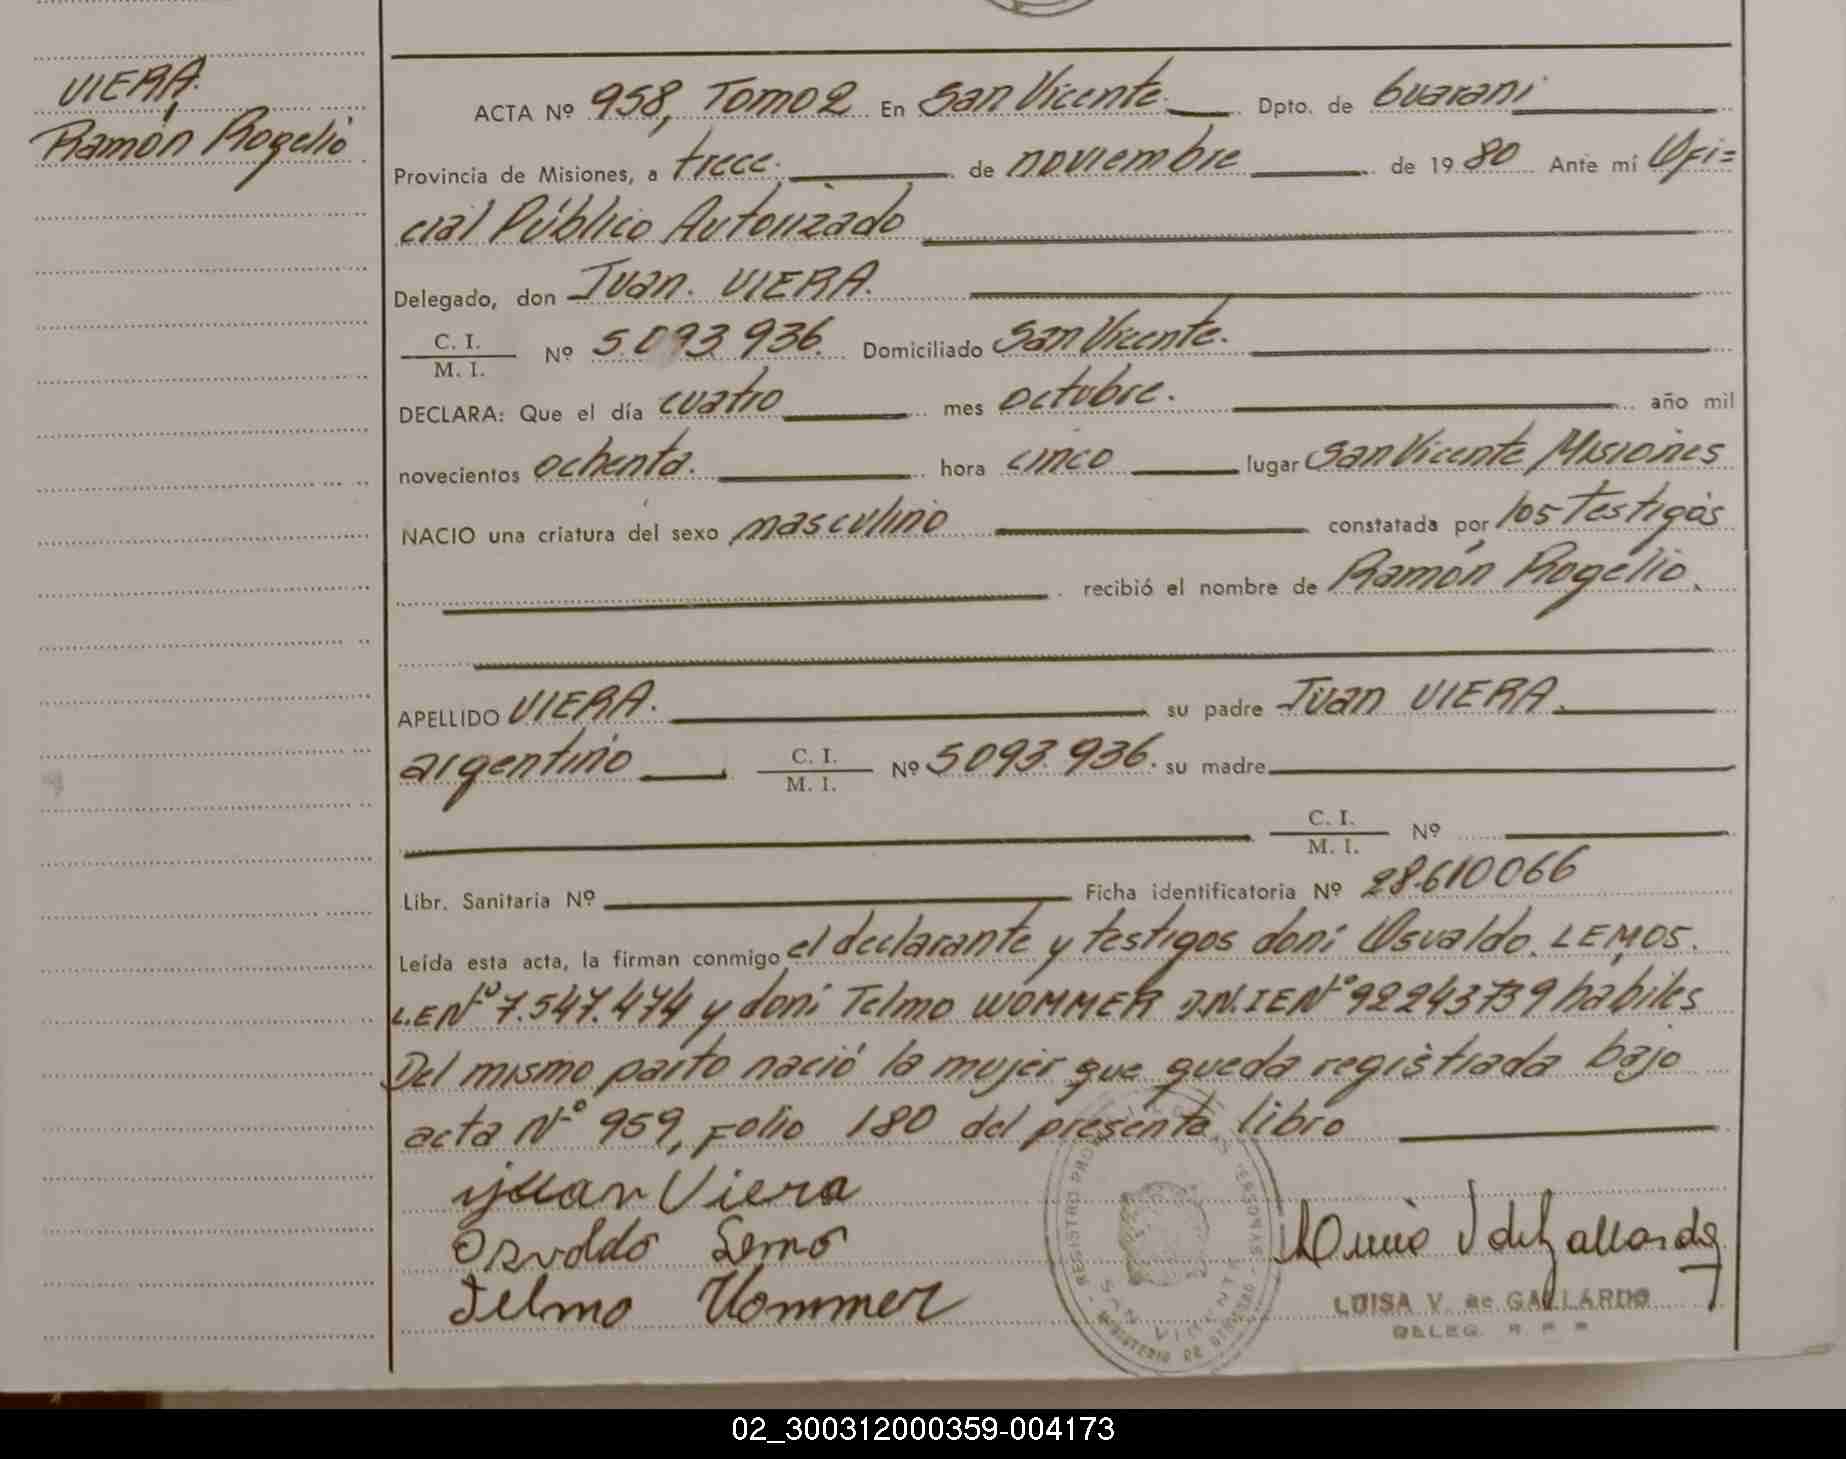 VIERA.
Ramón Rogelio
ACTA Nº 958, Tomo 2 En San Vicente Dpto. de Guarani
Provincia de Misiones, a trece de noviembre de 19 80 Ante mí Ofi=
cial Público Autorizado
Delegado, don Juan. VIERA.
C. I.
M. I. Nº 5.093.936. Domiciliado San Vicente.
DECLARA: Que el día cuatro mes octubre. año mil
novecientos ochenta. hora cinco lugar San Vicente Misiones
NACIO una criatura del sexo masculino constatada por los testigos
recibió el nombre de Ramón Rogelio.
APELLIDO VIERA. su padre Juan VIERA.
argentino C. I. M. I. Nº 5093.936. su madre
C. I. M. I. Nº
Libr. Sanitaria Nº Ficha identificatoria Nº 28.610066
Leída esta acta, la firman conmigo el declarante y testigos doni Osvaldo. LEMOS.
L.E Nº 7.547.474 y doni Telmo WOMMER D.N.I E Nº 92243739 habiles
Del mismo parto nació la mujer que queda registrada bajo
acta Nº 959, Folio 180 del presente libro
Juan Viera
Osvaldo Lemos
Telmo Wommer
REGISTRO PROVINCIAL DE LAS PERSONAS
SAN VICENTE
MINISTERIO DE GOBIERNO
LUISA V. de GALLARDO
DELEG. R. P. P.
02_300312000359-004173